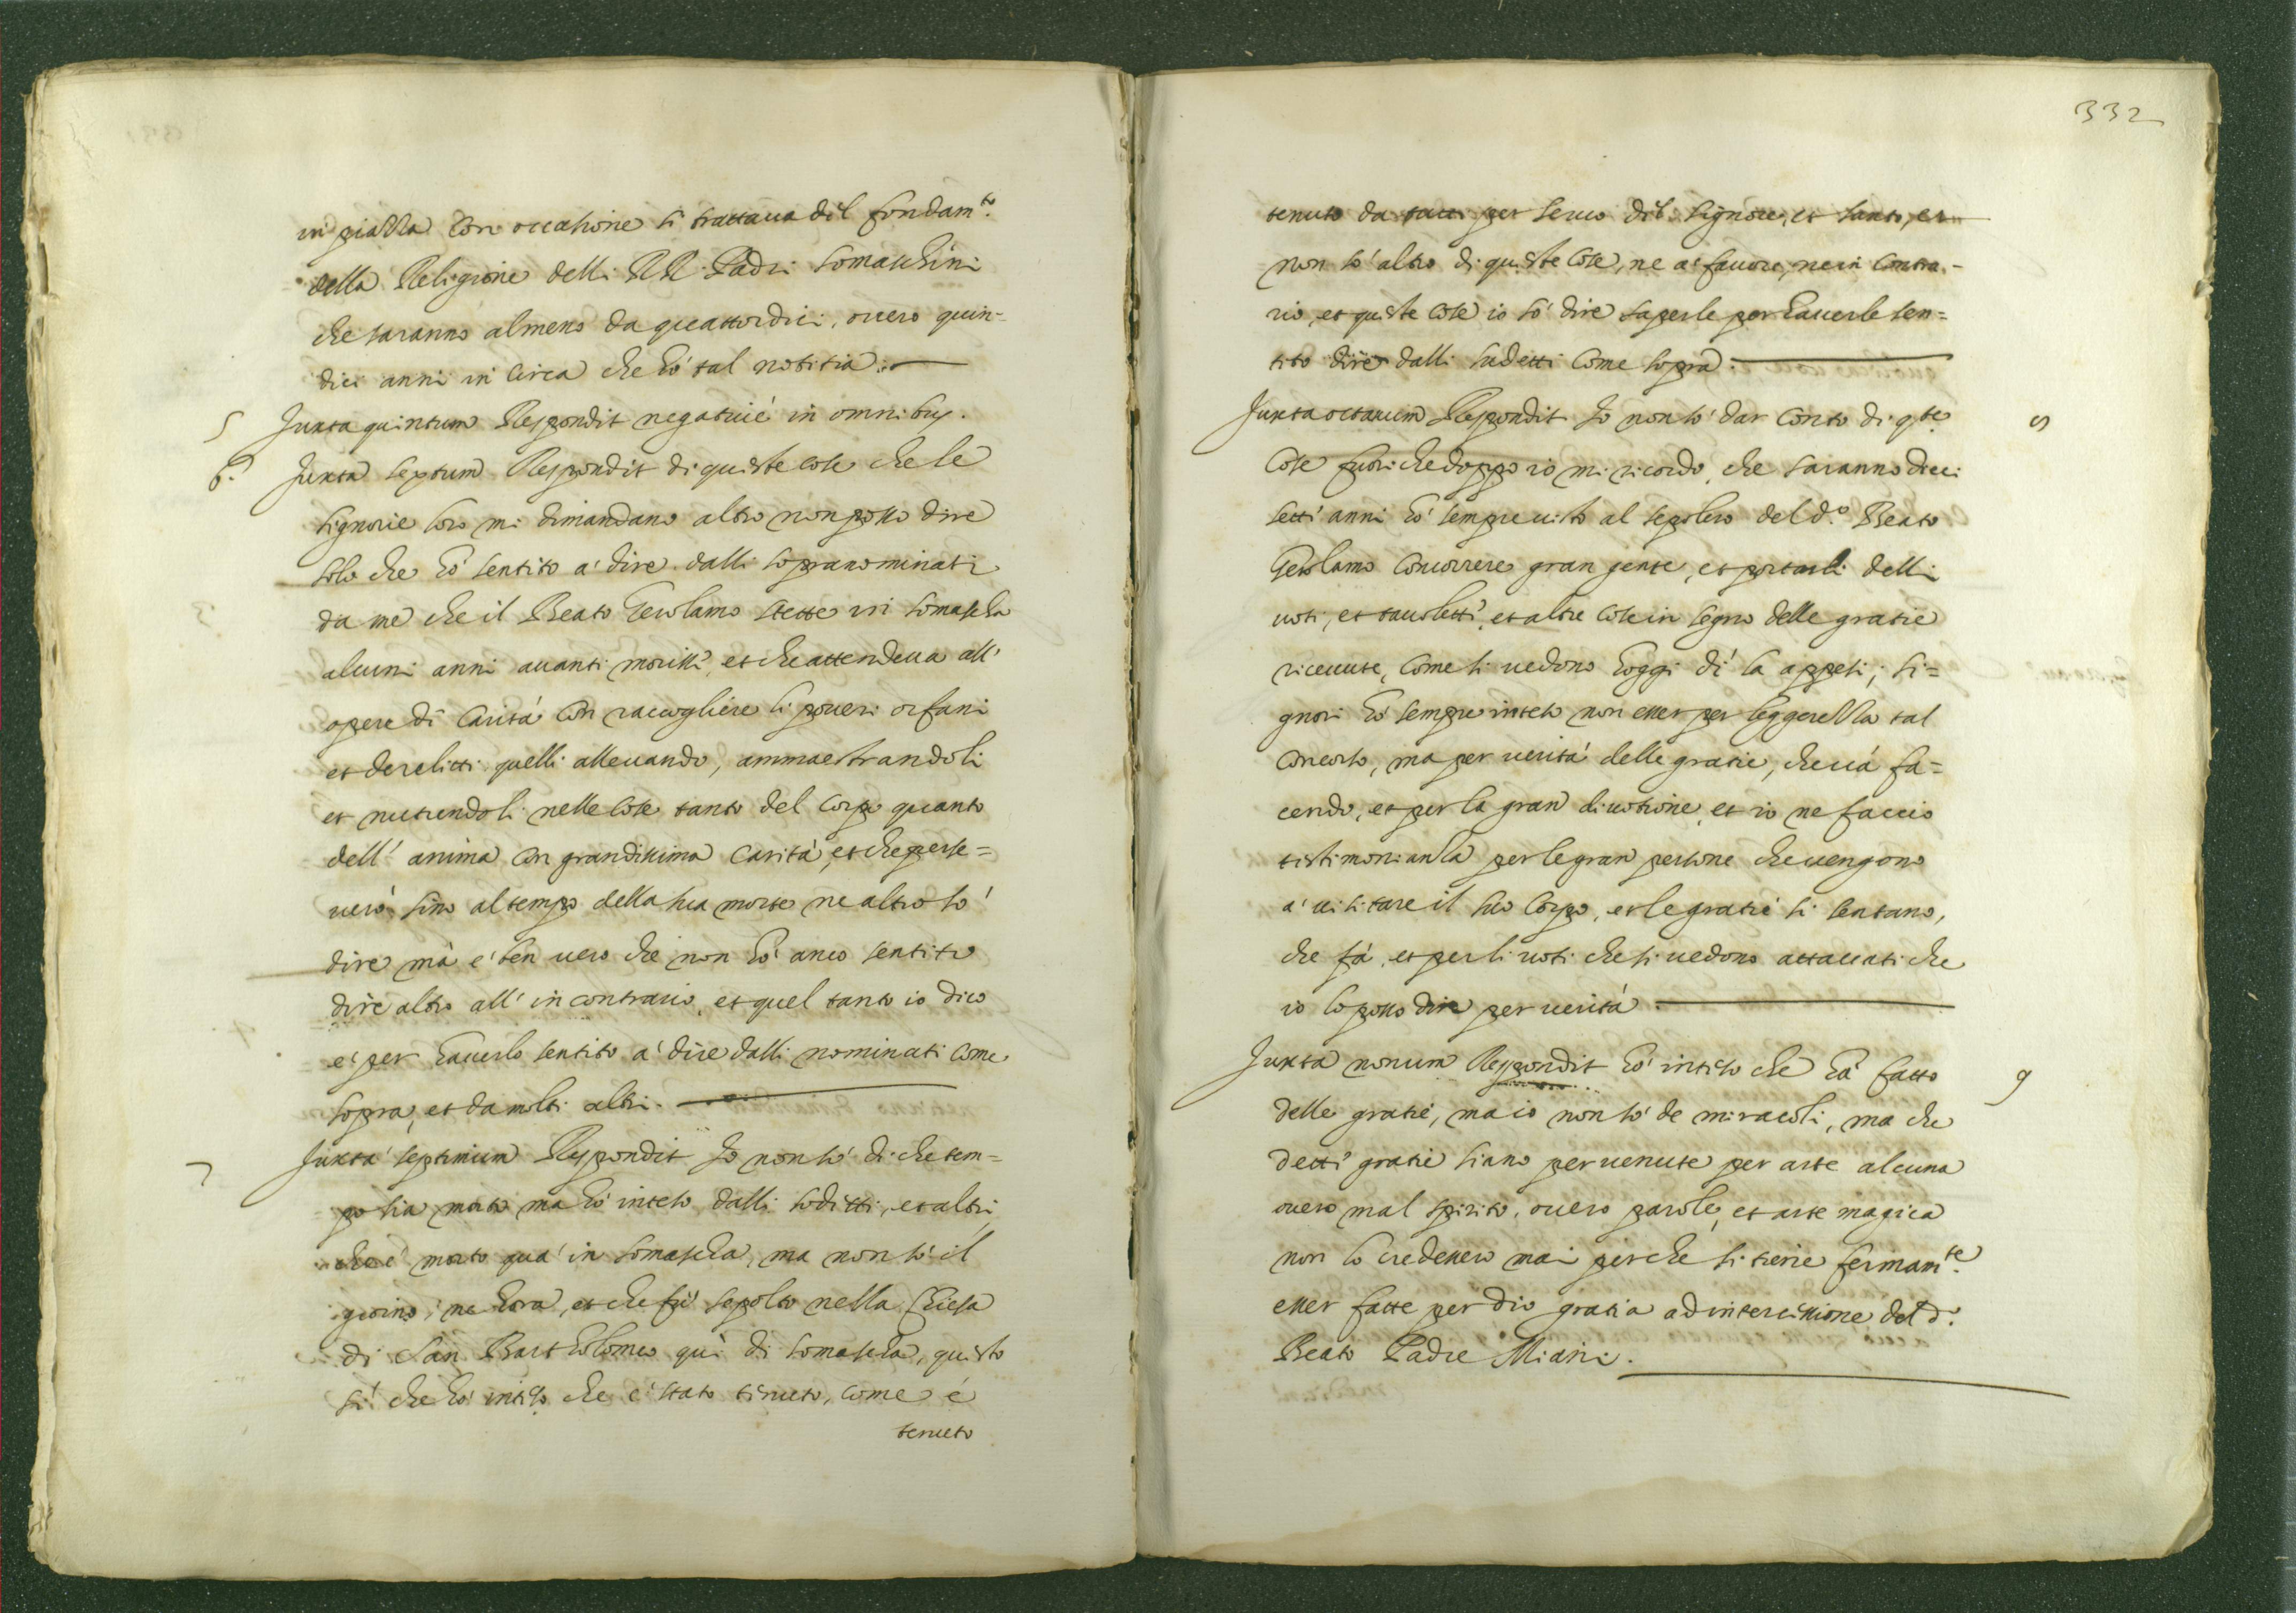 in piazza con occasione si trattava dil fondam.to
della Religione delli RR. Padri Somaschini
che saranno almeno da quattordici, overo quin=
dici anni in circa che hò tal notitia.
5 Juxta quintum Respondit negativè in omnibus.
6. Juxta sextum Respondit di queste cose che le
signorie loro mi dimandano altro non posso dire
solo che hò sentito a' dire dalli sopranominati
da me che il Beato Gerolamo stette in Somascha
alcuni anni avanti morissi, et che attendeva all'
opere di carità con raccogliere li poveri orfani
et derelitti quelli allevando, ammaestrandoli
et nutrendoli nelle cose tanto del corpo quanto
dell' anima con grandissima carità, et che perse=
verò sino al tempo della sua morte ne altro sò
dire mà e' ben vero che non hò anco sentito
dire altro all' in contrario, et quel tanto io dico
e' per haverlo sentito a' dire dalli nominati come
sopra, et da molti altri.
7 Juxta septimum Respondit Io non sò di che tem=
po sia morto ma hò inteso dalli sodetti, et altri
che e' morto qua' in Somascha, ma non sò il
giorno, ne hora, et che fu' sepolto nella Chiesa
di San Bartholomeo qui di Somascha, questo
si' che hò inteso che e' stato tenuto, come è
tenuto
332
tenuto da tutti per servo dil Signore, et santo, et
non sò altro di queste cose, ne a' favore, ne in contra=
rio, et queste cose io sò dire saperle per haverle sen=
tito dire dalli sudetti come sopra.
Juxta octavum Respondit Io non sò dar conto di q.te 8
cose fuori che doppo io mi ricordo, che saranno dieci
setti anni hò sempre visto al sepolcro del d.o Beato
Gerolamo concorrere gran gente, et portarli delli
voti, et tavoletti, et altre cose in segno delle gratie
ricevute, come si vedono hoggi dì la appesi; si=
gnori hò sempre inteso non esser per leggerezza tal
concorso, ma per verità delle gratie, che và fa=
cendo, et per la gran divotione, et io ne faccio
testimonianza per le gran persone che vengono
a' visitare il suo corpo, et le gratie si sentano,
che fà, et per li voti che si vedono attaccati che
io lo posso dire per verità.
Juxta nonum Respondit hò inteso che hà fatto 9
delle gratie, ma io non sò de miracoli, ma che
detti gratie siano pervenute per arte alcuna
overo mal spirito, overo parole, et arte magica
non lo credessero mai perche si tiene fermam.te
esser fatte per dio gratia ad intercessione del d.o
Beato Padre Miani.